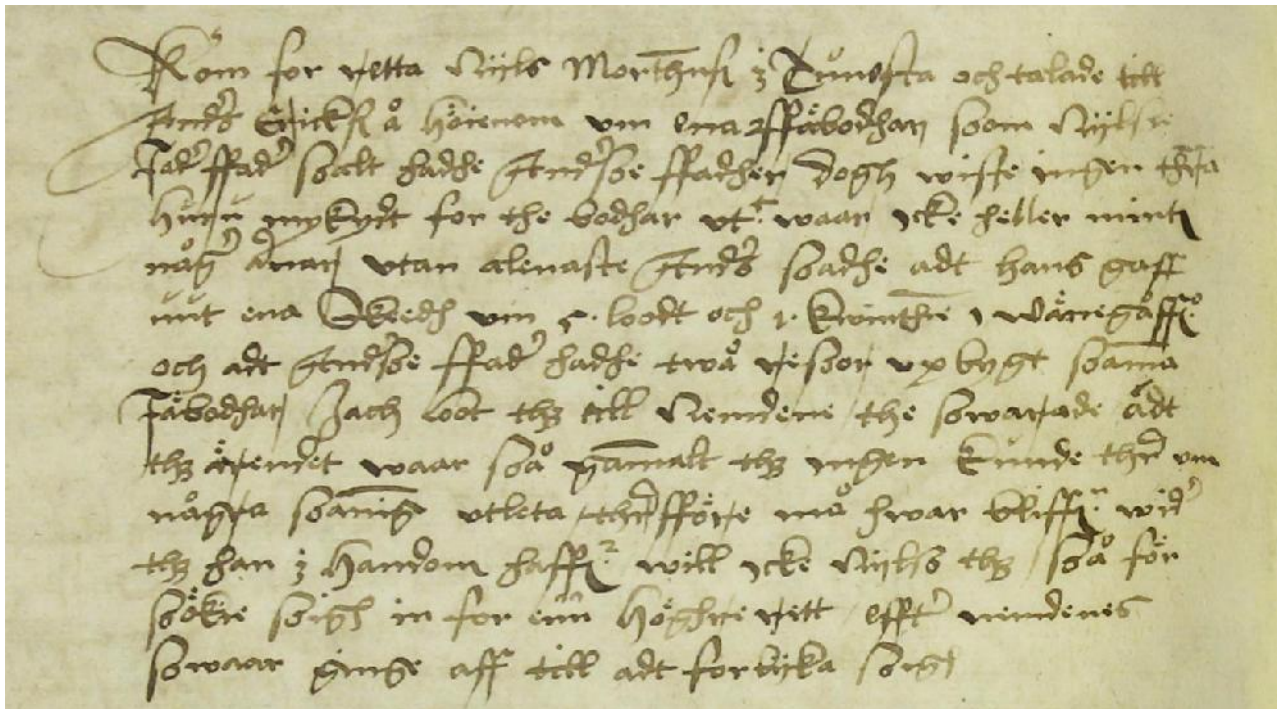 Kom for retta Nijls Mortensß j Tunesta och talade till
Anders Erickß å Höienom um ena ffäbodhar soom Nijlse
Fader ffader sålt hadhe Anderse ffadher dogh wiste ingen
huru mykydt for the bodhar ut: waar icke heller
någer annar utan alenaste Anders sadhe adt hans gaff
uut ena Skeedh um 5. loodt och 1. Kwinthe i wänegåffue
och adt Anderse ffader hadhe twå resor upbygt samma
Fäbodhar Jach loot thz till Nemdene the swarade adt
thz ärendet waar så gammalt thz ingen kunde ther um
några sanning utleta therfföre må hwar bliffue wid
thz han j handom haffuer will icke Nijls thz så för
sökie sigh in for enn höghre rett effter nemdenes
swaar ginge aff till adt forlijka sig